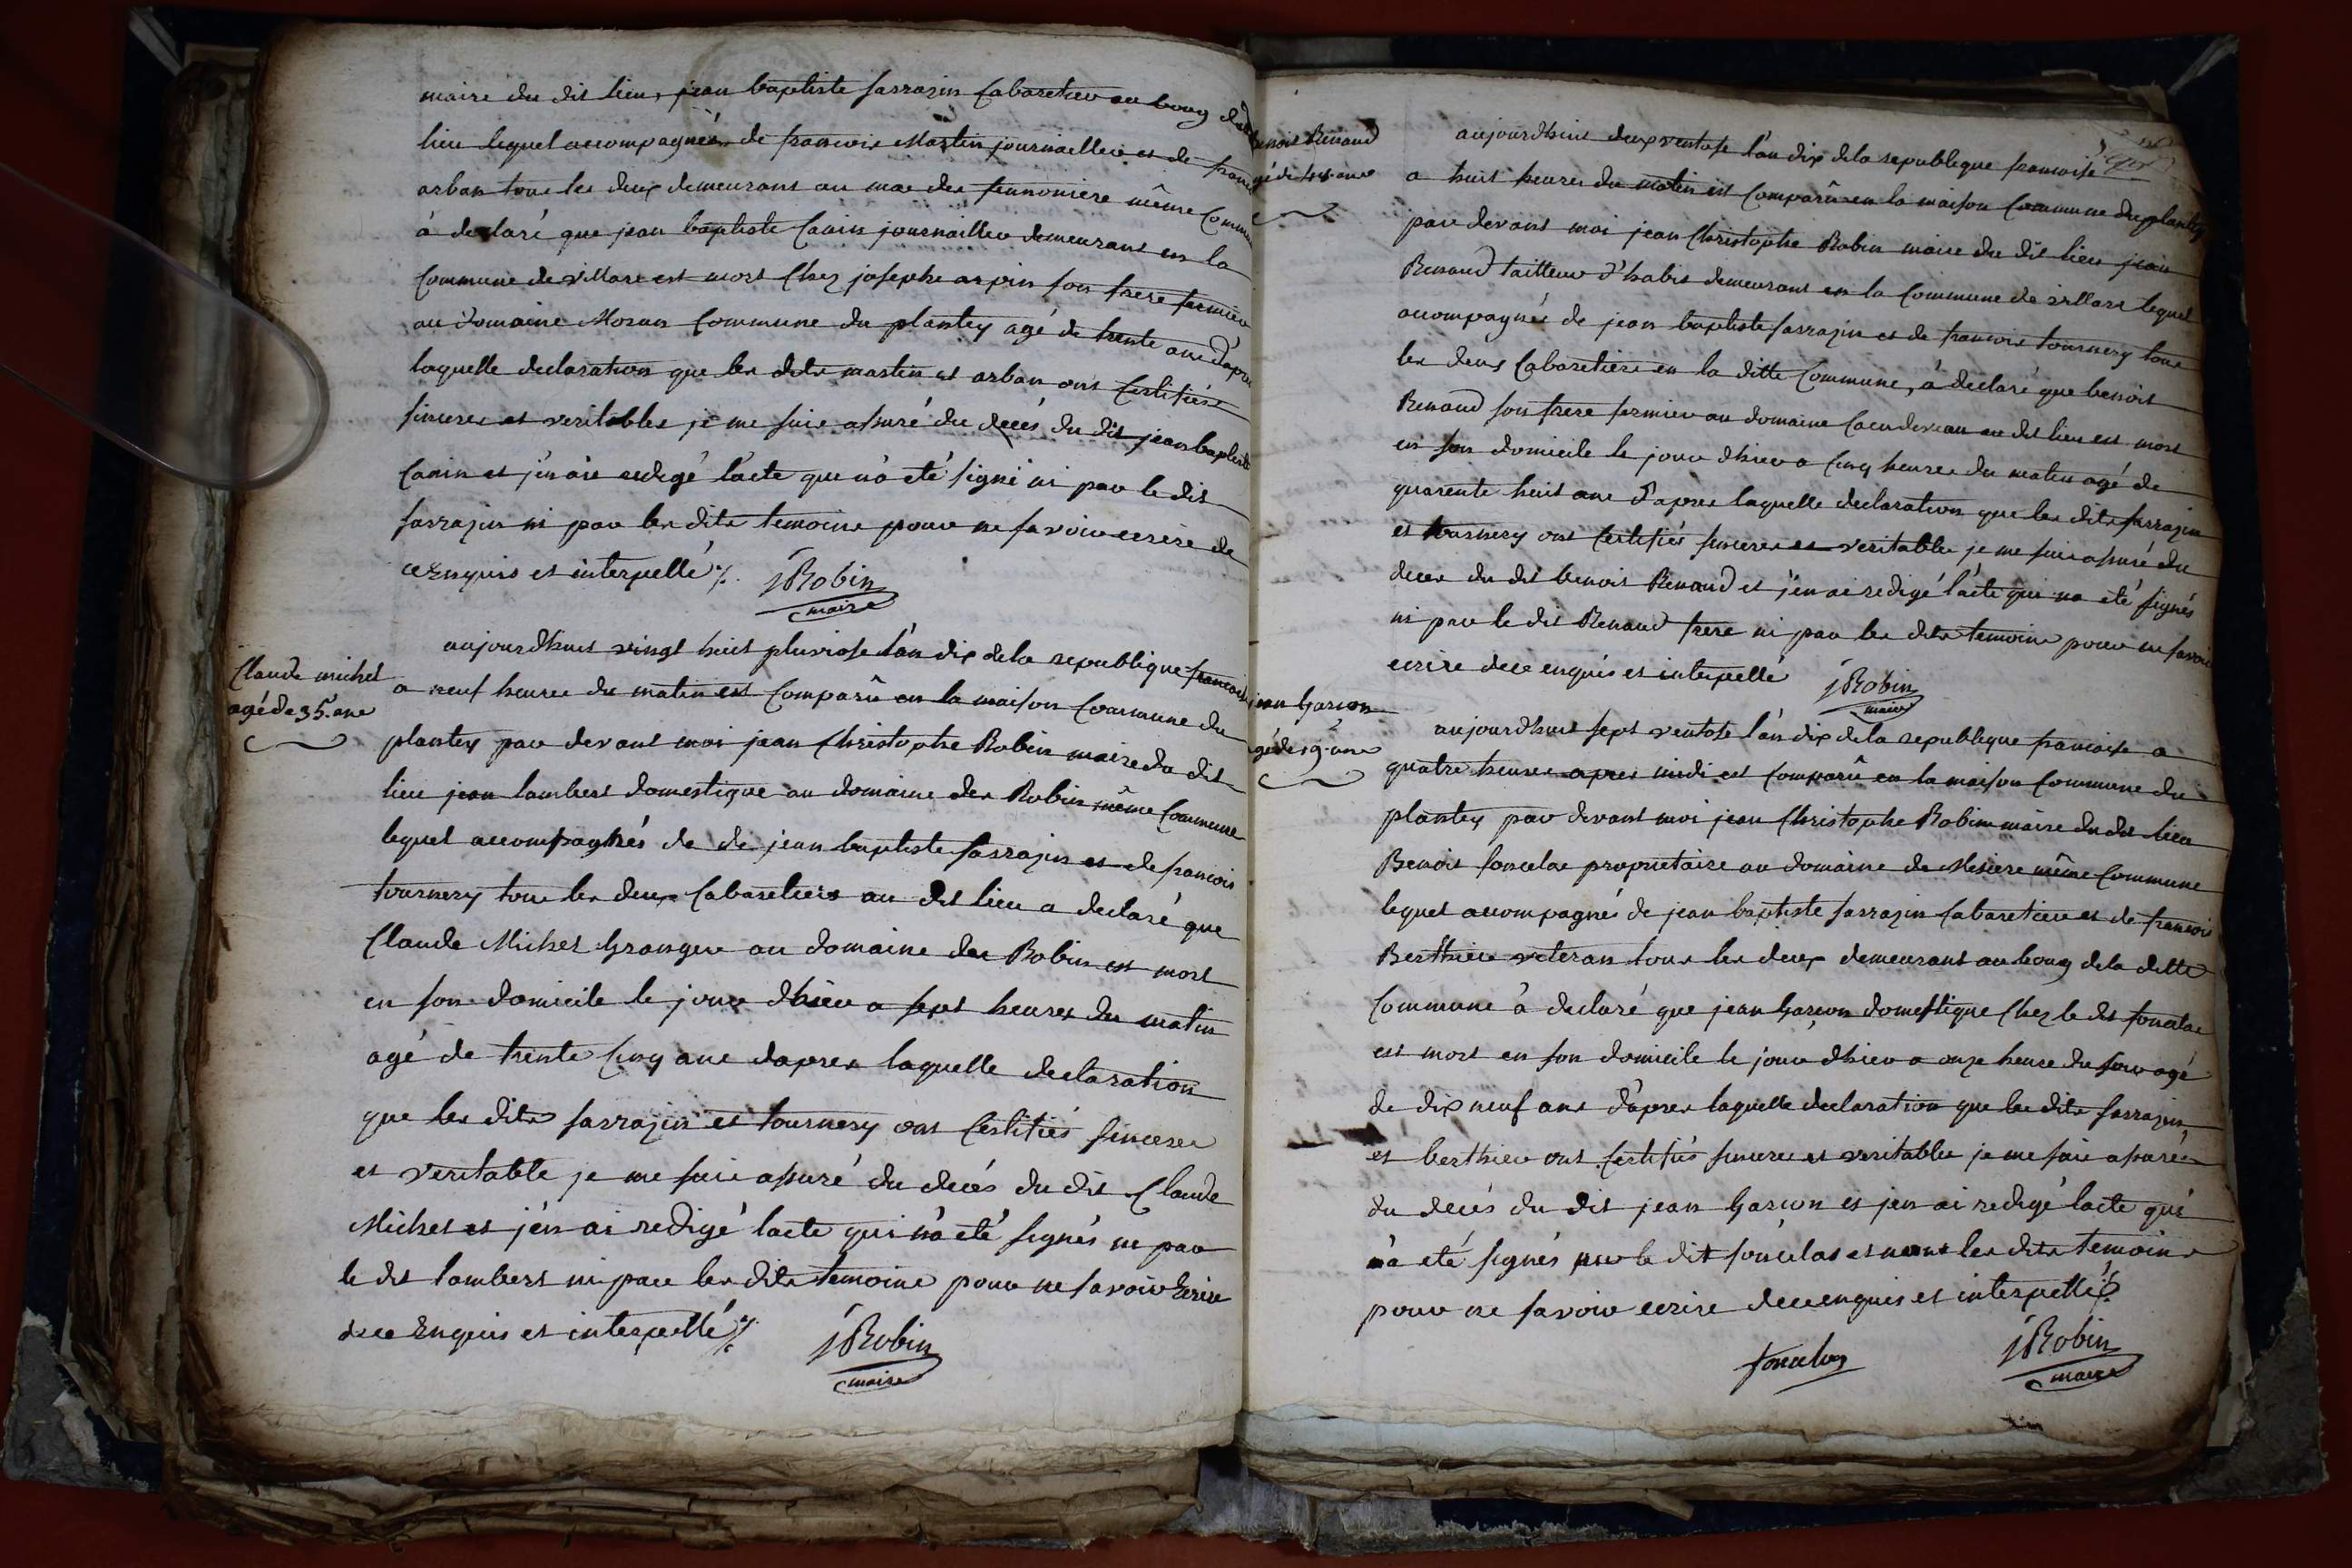 maire du dit lieu, jean baptiste sarrazin Cabaretier au bourg du dit
lieu lequel accompagnés de francois Martin journaillier et de francois
arban tous les deux demeurans au mas des même Commune
à declaré que jean baptiste journaillier demeurant en la
Commune de villars est mort Chez josephe arpin son frere fermier
au domaine Moran Commune du plantey agé de trente ans d'apres
laquelle declaration que les dits martin et arban ont Certifiés
sinceres et veritables je me suis assuré du decés du dit jean baptiste
et j'en ais redigé l'acte que n'a eté signé ni par le dit
sarrazin ni par les dits temoins pour ne savoir ecrire de
ce Enquis et interpellé %. JRobin
maire
Claude michel
agé de 35. ans
aujourdhuit vingt huit pluviose l'an dix de la republique francoise
a neuf heures du matin est Comparû en la maison Commune du
plantey par devant moi jean Christophe Robin maire du dit
lieu jean lambert domestique au domaine des Robin même Commune
lequel accompagnés de de jean baptiste sarrazin et de francois
tournery tous les deux Cabaretiers au dit lieu a declaré que
Claude Michel Granger au domaine des Robin est mort
en son domicile le jour dhier a sept heures du matin
agé de trente Cinq ans dapres laquelle declaration
que les dits sarrazin et tournery ont Certifiés sinceres
et veritable je me suis assuré du decés du dit Claude
Michel et j'en ai redigé lacte qui n'a eté signés ni par
le dit lambert ni par les dits temoins pour ne savoir Ecrire
de ce Enquis et interpellé %. JRobin
maire
benois Renaud
agé de 48. ans
aujourdhuit deux ventose l'an dix de la republique francoise
a huit heures du matin est Comparû en la maison Commune du plantey
par devant moi jean Christophe Robin maire du dit lieu jean
Renaud tailleur d'habit demeurant en la Commune de villars lequel
accompagnés de jean baptiste sarrazin et de francois tournery tous
les deus Cabaretiers en la ditte Commune, à declaré que benoit
Renaud son frere fermier au domaine au dit lieu est mort
en son domicile le jour dhier a Cinq heures du matin agé de
quarente huit ans d'apres laquelle declaration que les dits sarrazin
et tournery ont Certifiés sinceres et veritables je me suis assuré du
deces du dit benois Renaud et j'en ai redigé l'acte qui na eté signés
ni par le dit Renaud frere ni par les dits temoins pour ne savoir
ecrire de ce enquis et interpellé JRobin
maire
jean Garcon
agé de 19. ans
aujourdhuit sept ventose l'an dix de la republique francoise a
quatre heures apres midi est Comparû en la maison Commune du
plantey par devant moi jean Christophe Robin maire du dit lieu
Benoit foncelas proprietaire au domaine de Mesiere même Commune
lequel accompagné de jean baptiste sarrazin Cabaretier et de francois
Berthier veteran tous les deux demeurant au bourg de la ditte
Commune à declaré que jean Garcon domestique Chez le dit foncelas
est mort en son domicile le jour dhier a onze heure du soir agé
de dix neuf ans d'apres laquelle declaration que les dits sarrazin,
et berthier ont Certifiés sinceres et veritables je me suis assurés
du decés du dit jean Garcon et jen ai redigé lacte qui
n'a eté signés le dit foncelas et les dits temoins
pour ne savoir ecrire de ce enquis et interpellé
foncelas JRobin
maire